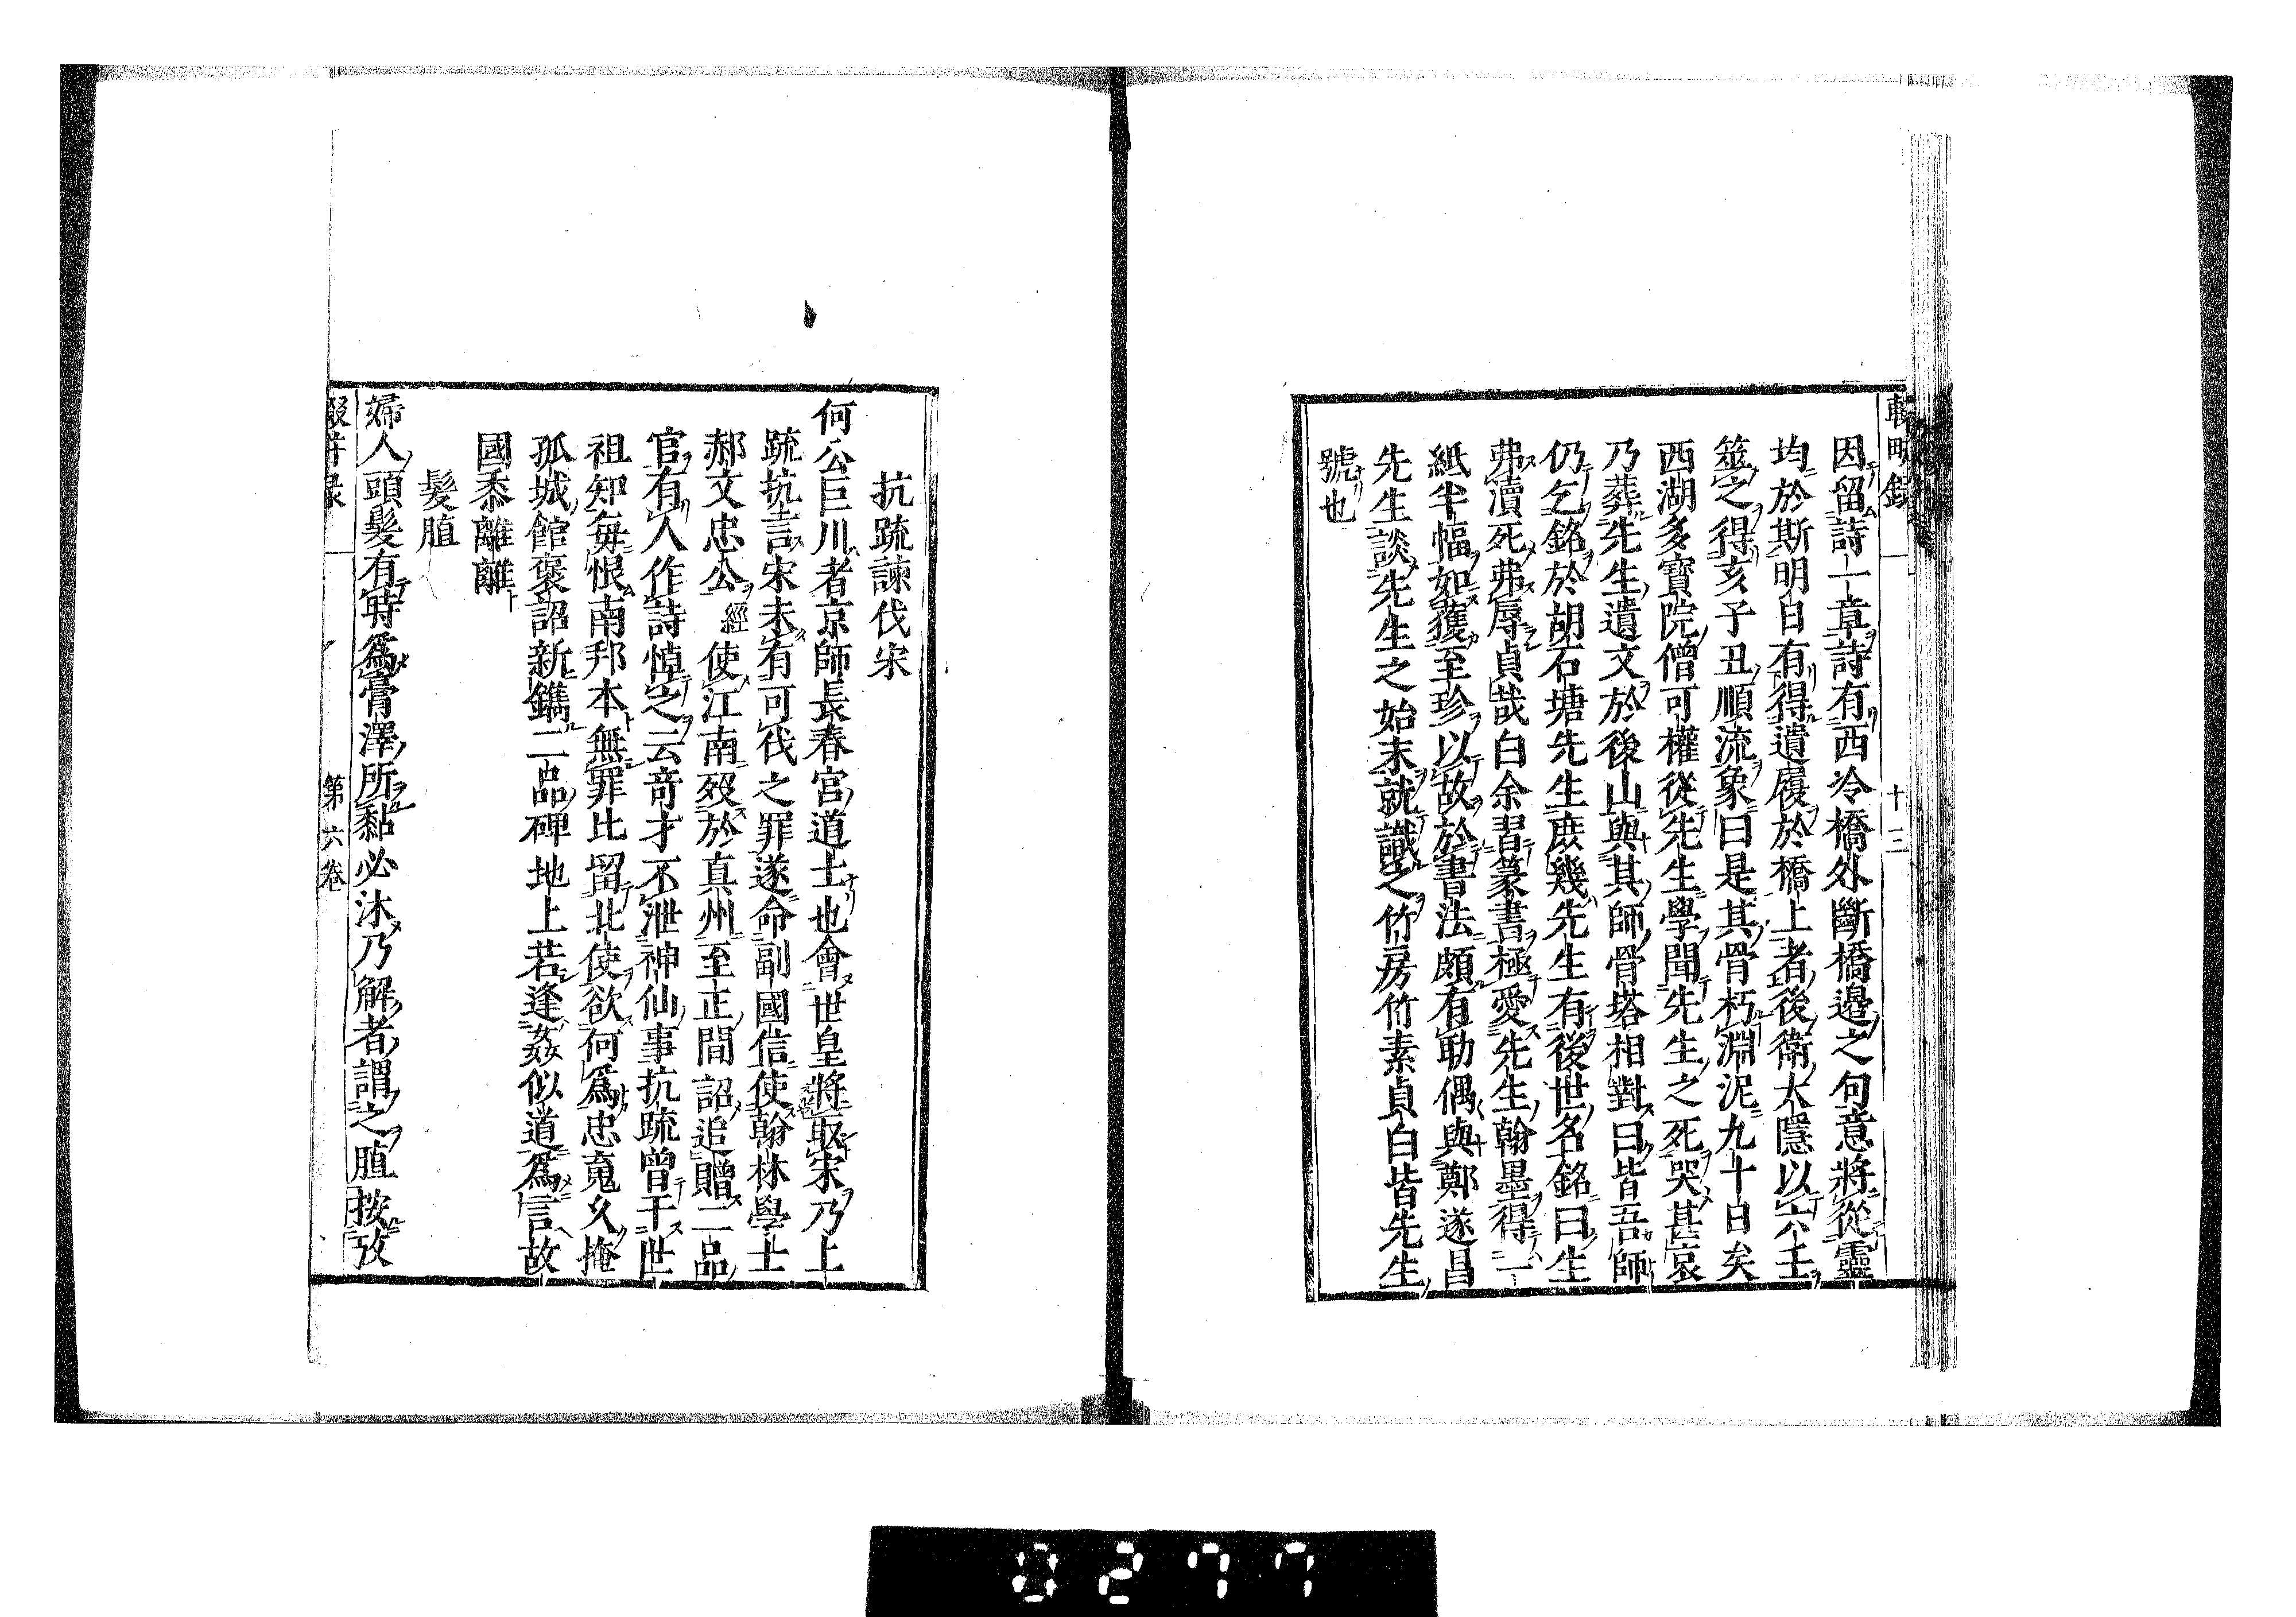 輟畊錄
十三
因留詩一章詩有西冷橋外斷橋邊之句意將從靈
均於斯明日有得遺履於橋上者後衛大隱以六壬
筮之得亥子丑順流象曰是其骨朽淵泥九十日矣
西湖多寶院僧可權從先生學聞先生之死哭甚哀
乃葬先生遺文於後山與其師骨塔相對曰皆吾師
仍乞銘於胡石塘先生庶幾先生有後世名銘曰生
弗瀆死弗辱貞哉白余習篆書極愛先生翰墨得一
紙半幅如獲至珍以故於書法頗有助偶與鄭遂昌
先生談先生之始末就識之竹房竹素貞白皆先生
號也
抗疏諫伐宋
何公巨川者京師長春宮道士也會世皇將取宋乃上
疏抗言宋未有可伐之罪遂命副國信使翰林學士
郝文忠公經使江南歿於真州至正間詔追贈二品
官有人作詩悼之云奇才不泄神仙事抗疏曾干世
祖知每恨南邦本無罪比留北使欲何爲忠䰟久掩
孤城館褒詔新鐫二品碑地上若逢姦似道爲言故
國黍離離
髮䐈
婦人頭髮有時爲膏澤所黏必沐乃解者謂之䐈按攷
輟畊录
第六卷